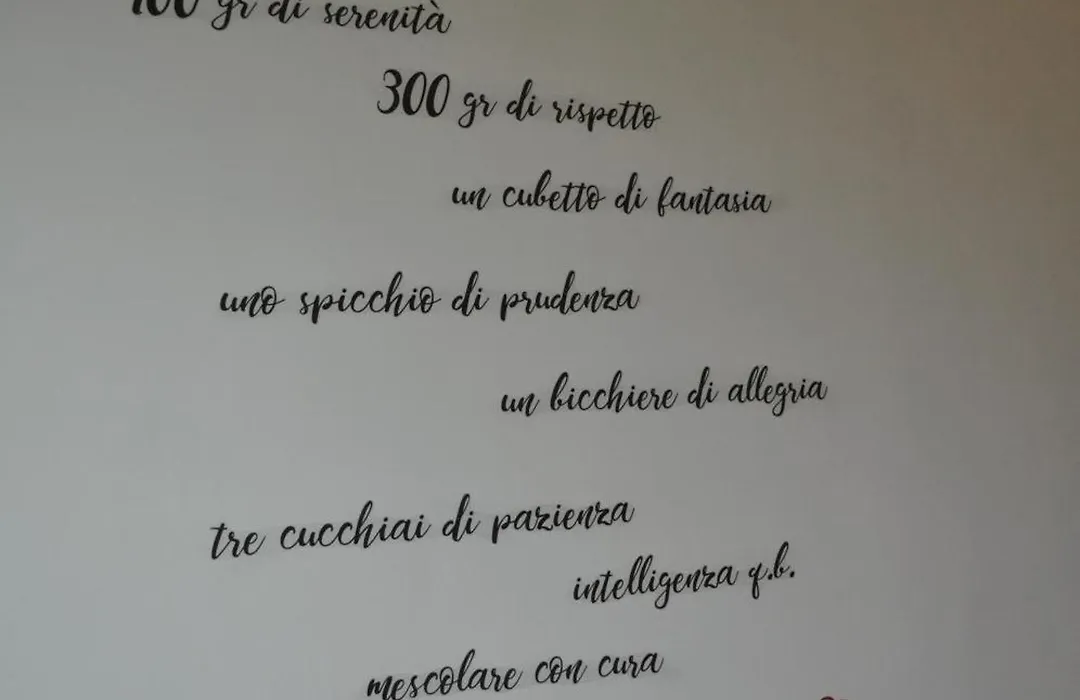 100 gr di serenità
300 gr di rispetto
un cubetto di fantasia
uno spicchio di prudenza
un bicchiere di allegria
tre cucchiai di pazienza
intelligenza q.b.
mescolare con cura